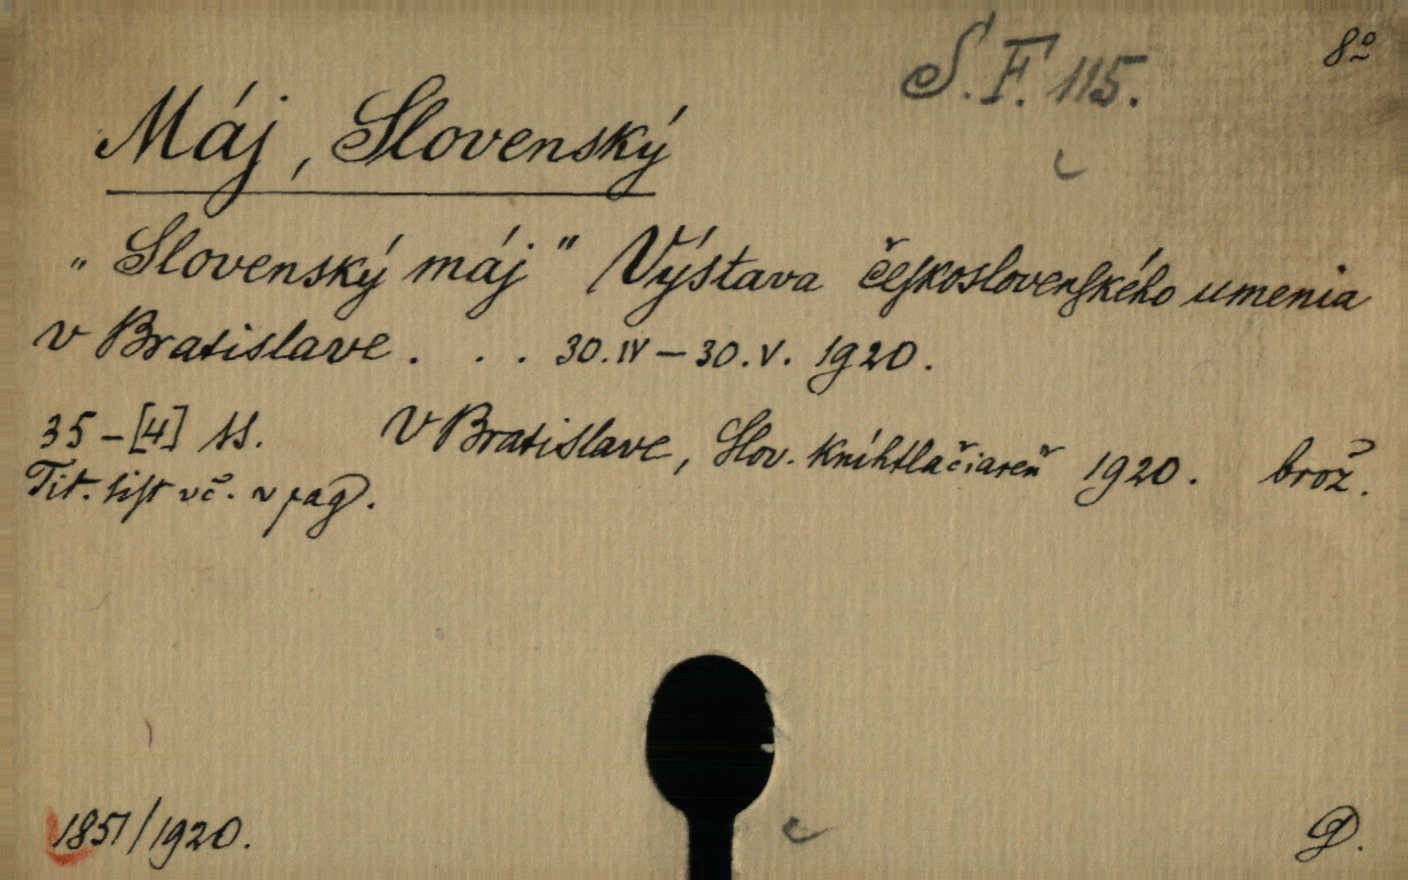 S. F. 115.
8º
Máj, Slovenský
„Slovenský máj" Výstava československého umenia
v Bratislave. . . 30.IV – 30.V. 1920.
35–[4] ss. V Bratislave, Slov. Kníhtlačiareň 1920. brož.
Tit. list vč. v pag.
1851/1920.
D.